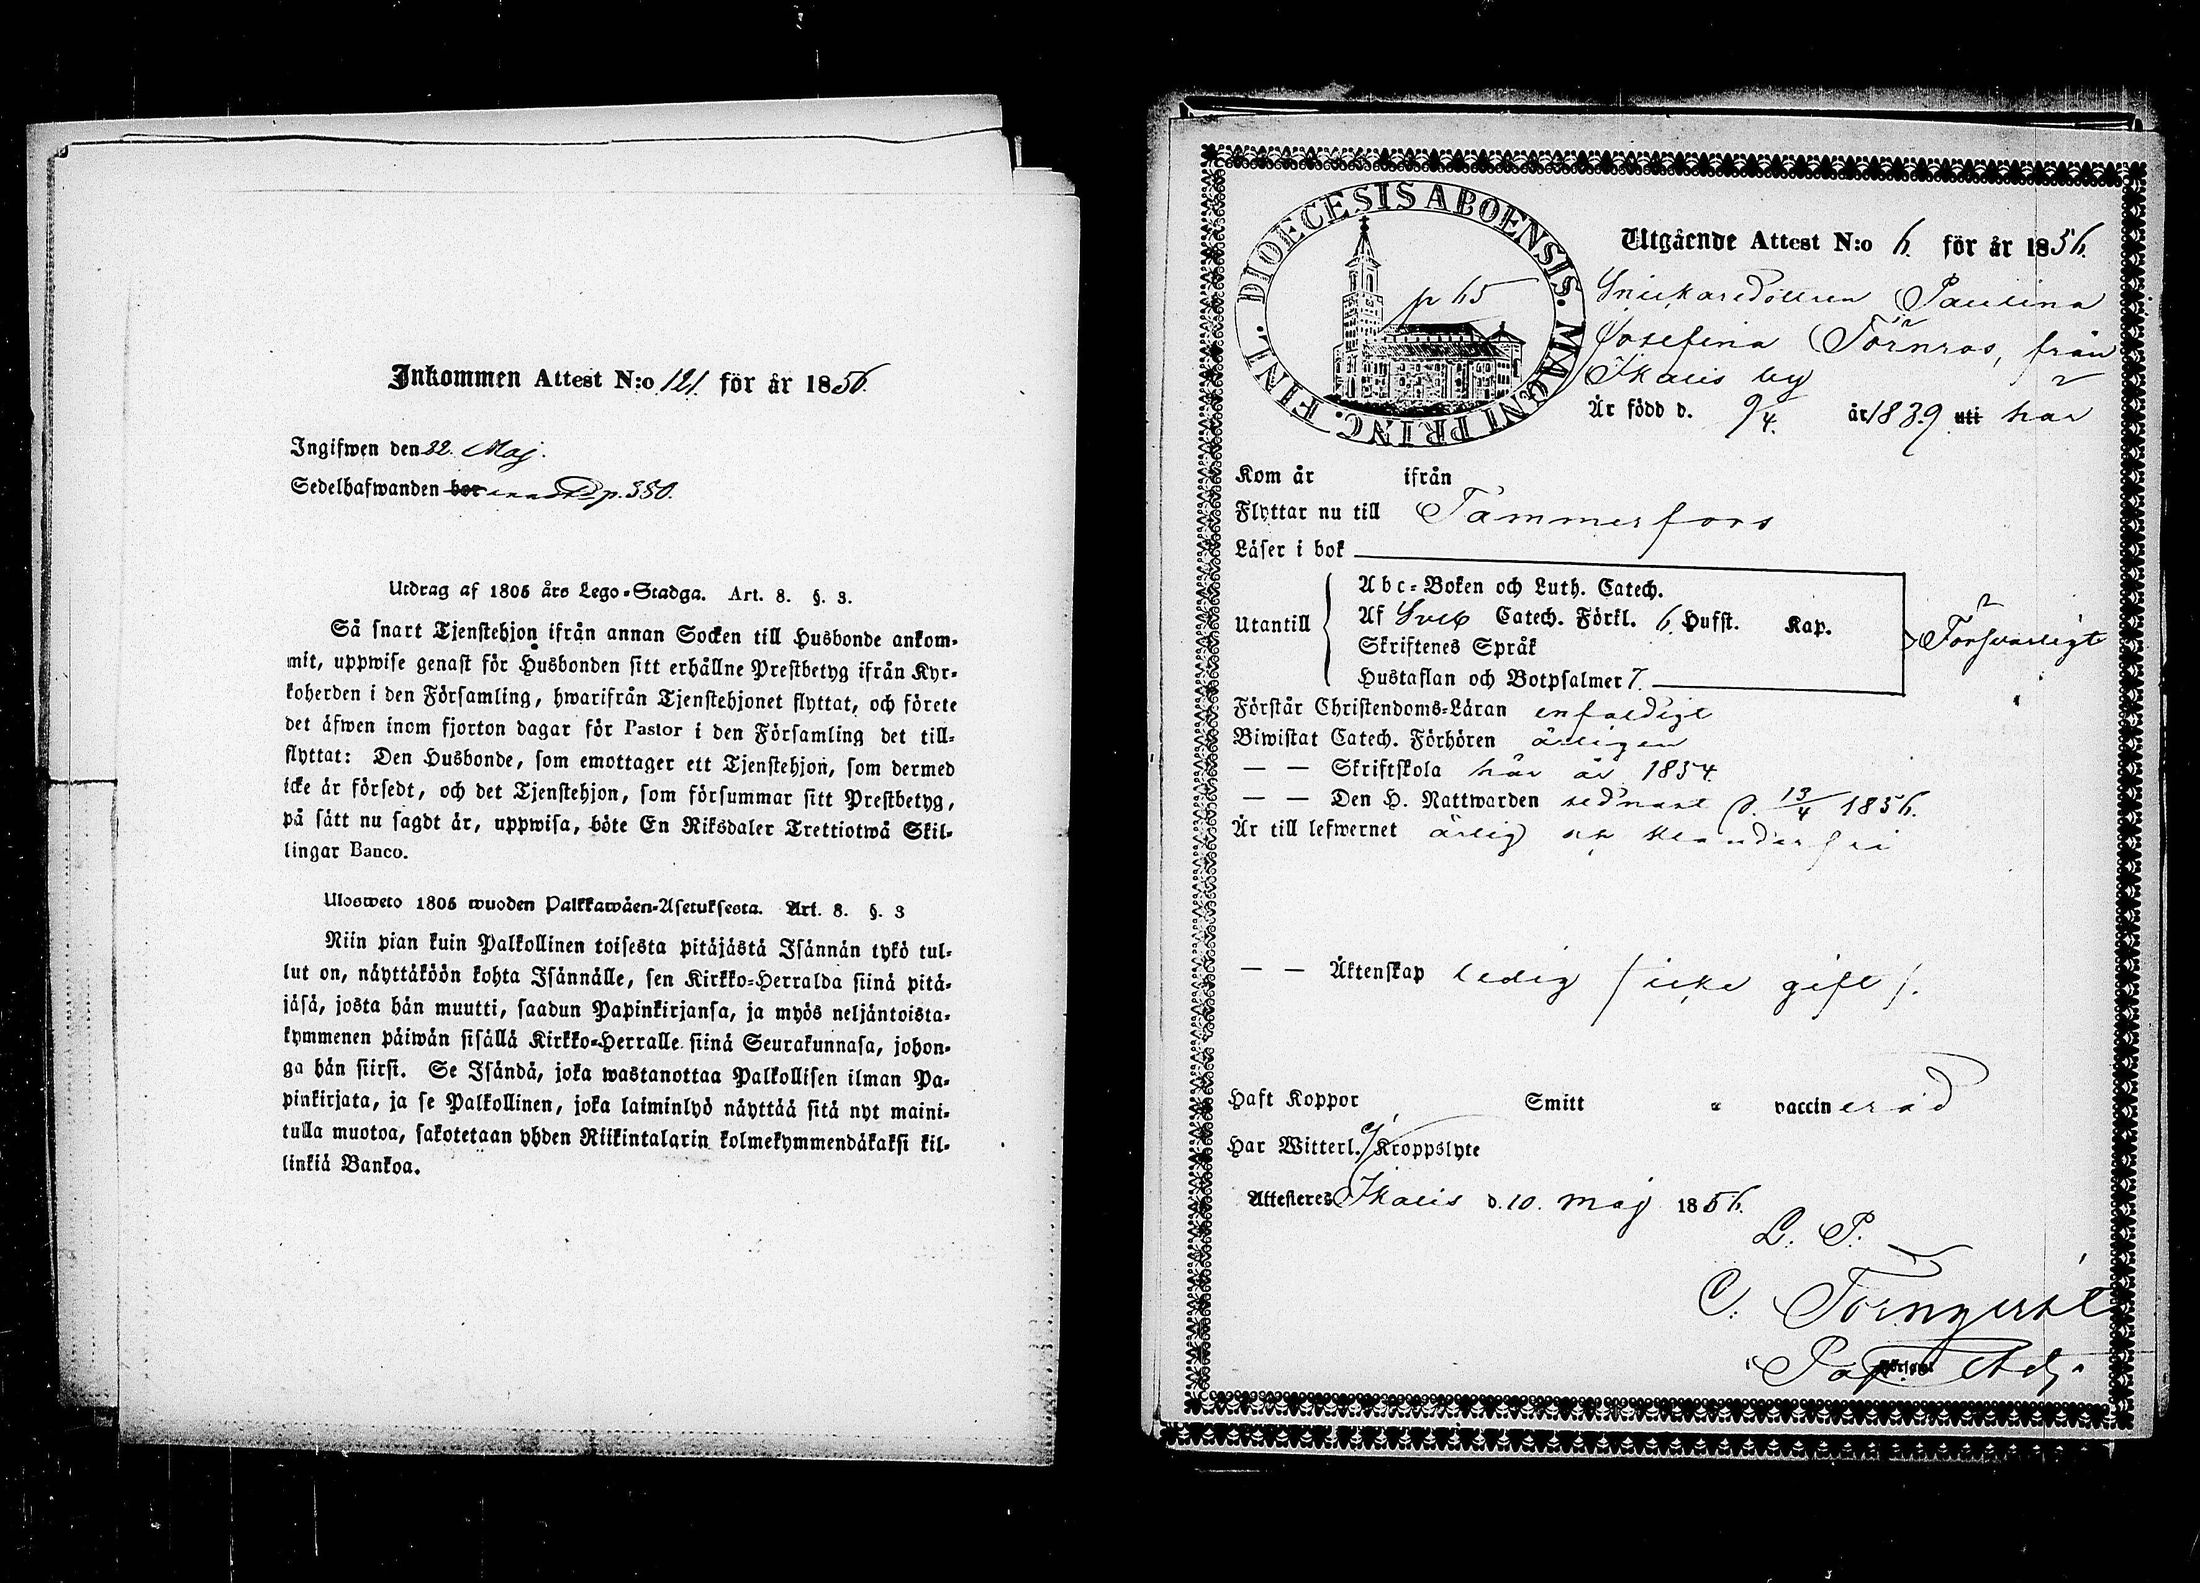 Inkommen Attest N:o 121. för år 1856.
Ingifwen den 22. Maj.
Sedelhafwanden bor p. 350.
Utdrag af 1805 års Lego-Stadga. Art. 8. §. 3.
Så snart Tjenstehjon ifrån annan Socken till Husbonde ankom-
mit, uppwise genast för Husbonden sitt erhållne Prestbetyg ifrån Kyr-
koherden i den Församling, hwarifrån Tjenstehjonet flyttat, och förete
det äfwen inom fjorton dagar för Pastor i den Församling det till-
flyttat: Den Husbonde, som emottager ett Tjenstehjon, som dermed
icke är försedt, och det Tjenstehjon, som försummar sitt Prestbetyg,
på sätt nu sagdt är, uppwisa, böte En Riksdaler Trettiotwå Skil-
lingar Banco.
Ulosweto 1805 wuoden Palkkawäen-Asetuksesta. Art. 8. §. 3
Niin pian kuin Palkollinen toisesta pitäjästä Isännän tykö tul-
lut on, näyttäköön kohta Isännälle, sen Kirkko-Herralda siinä pitä-
jäsä, josta hän muutti, saadun Papinkirjansa, ja myös neljäntoista-
kymmenen päiwän sisällä Kirkko-Herralle siinä Seurakunnasa, johon-
ga hän siirsi. Se Isändä, joka wastanottaa Palkollisen ilman Pa-
pinkirjata, ja se Palkollinen, joka laiminlyö näyttää sitä nyt maini-
tulla muotoa, sakotetaan yhden Riikintalarin kolmekymmendäkaksi kil-
linkiä Bankoa.
DIOECESIS ABOENSIS. MAGNI PRINC. FINL.
p 65
Utgående Attest N:o 6. för år 1856.
Snickaredottren Paulina
Josefina Törnros, från
Ikalis by
Är född d. 9/4. år 1839 uti här
Kom år ifrån
Flyttar nu till Tammerfors
Läser i bok
Utantill
Abc-Boken och Luth. Catech.
Af Sveb Catech. Förkl. 6. Hufst. Kap.
Skriftenes Språk
Hustaflan och Botpsalmer 7.
Försvarligt
Förstår Christendoms-Läran enfaldigt
Biwistat Catech. Förhören årligen
— — Skriftskola här år 1854.
— — Den H. Nattwarden sednast d. 13/4 1856.
Är till lefwernet ärlig och klanderfri
— — Äktenskap ledig /icke gift/.
Haft Koppor Smitt vaccinerad
Har Witterl. Kroppslyte
Attesteres Ikalis d. 10. Maj 1856.
L. P.
C. Törnqvist
Past Adj.